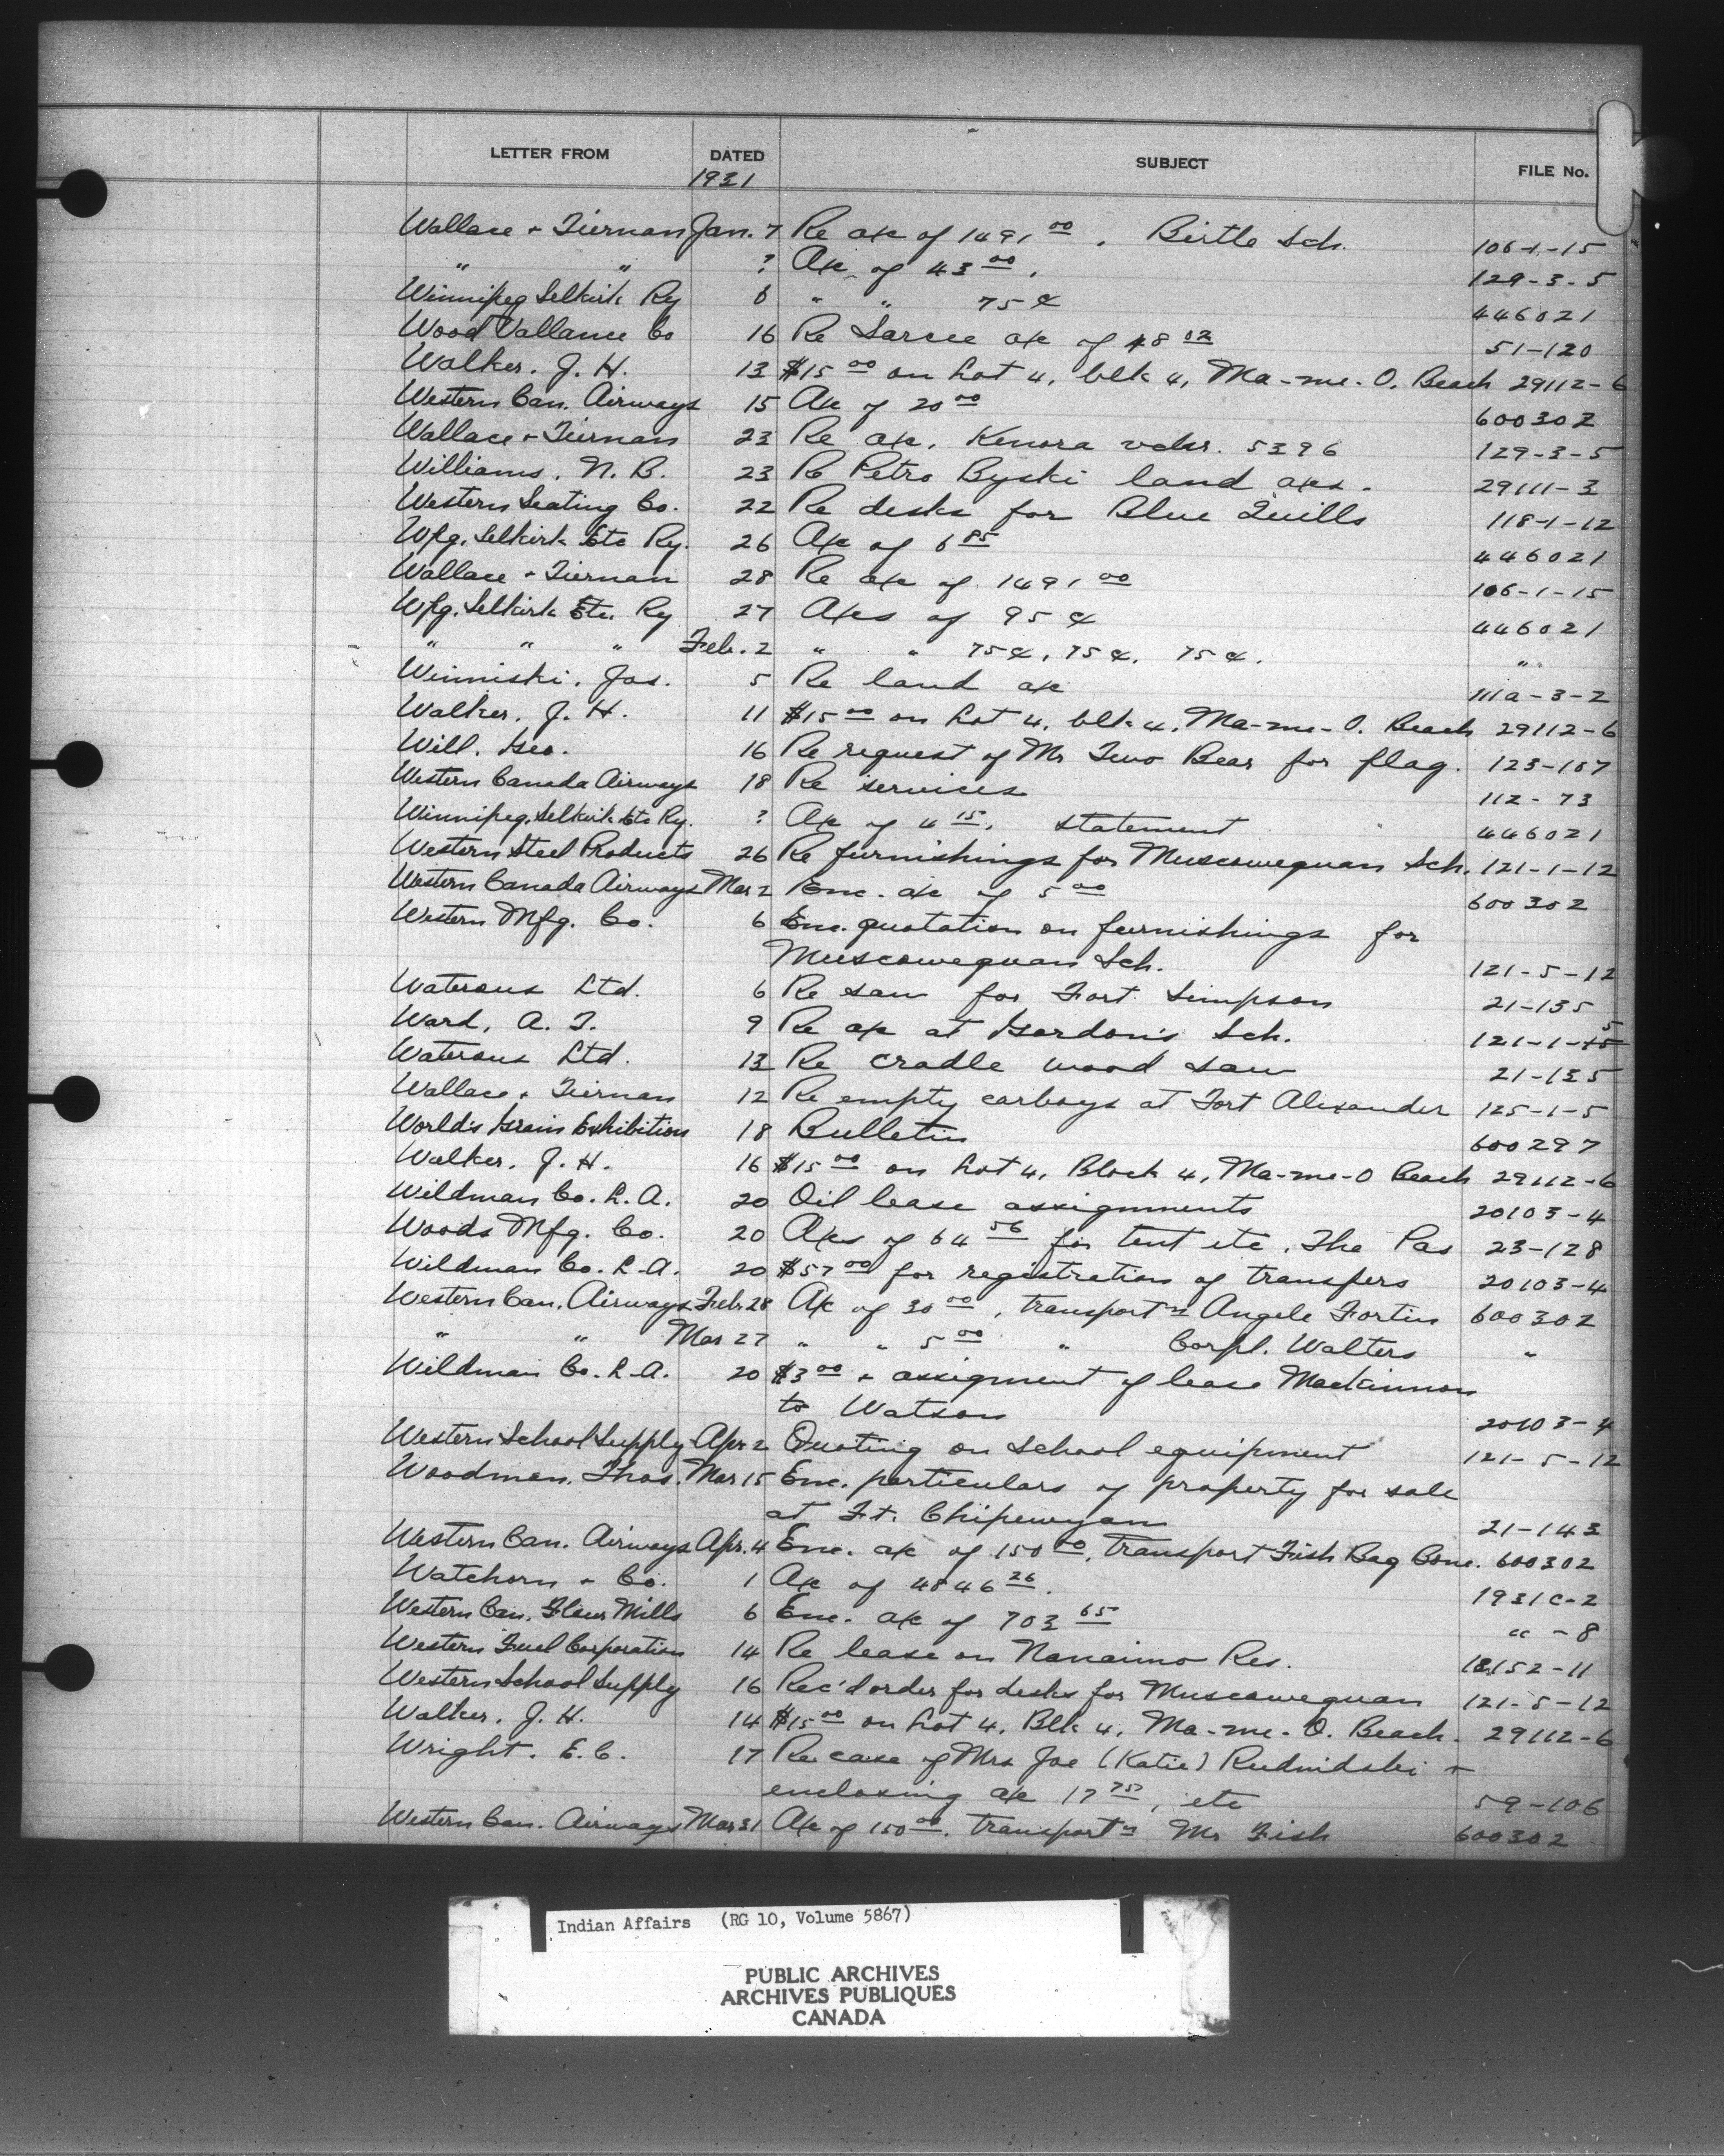 LETTER FROM DATED SUBJECT FILE No.
1931
Wallace + Tiernan Jan. 7 Re a/c of 1491 00. Birtle Sch. 106-1-15
" " ? A/c of 43 00. 129-3-5
Winnipeg Selkirk Ry 6 " " 75¢ 446021
Wood Vallance Co 16 Re Sarcee a/c of 48 02 51-120
Walker. J. H. 13 $15 00 on Lot 4, blk 4, Ma-me-O. Beach 29112-6
Western Can. Airways 15 A/c of 20 00 600302
Wallace + Tiernan 23 Re a/c. Kenora vchr. 5396 129-3-5
Williams. N. B. 23 Re Petro Byski land a/cs. 29111-3
Western Seating Co. 22 Re desks for Blue Quills 118-1-12
Wpg. Selkirk Etc Ry. 26 A/c of 6 85 446021
Wallace + Tiernan 28 Re a/c of 1491 00 106-1-15
Wpg. Selkirk Etc. Ry 27 A/cs of 95¢ 446021
" " " Feb. 2 " " 75¢, 75¢, 75¢. "
Winniski. Jos. 5 Re land a/c 111a-3-2
Walker. J. H. 11 $15 00 on Lot 4, blk 4, Ma-me-O. Beach 29112-6
Will. Geo. 16 Re request of Mr Two Bear for flag. 123-107
Western Canada Airways 18 Re services 112-73
Winnipeg Selkirk Etc Ry. ? A/c of 4 15. statement 446021
Western Steel Products 26 Re furnishings for Muscowequan Sch. 121-1-12
Western Canada Airways Mar 2 Enc. a/c of 5 00 600302
Western Mfg. Co. 6 Enc. quotation on furnishings for
Muscowequan Sch. 121-5-12
Waterous Ltd. 6 Re saw for Fort Simpson 21-135
Ward, A. T. 9 Re a/c at Gordon's Sch. 121-1-5
Waterous Ltd. 13 Re cradle wood saw 21-135
Wallace + Tiernan 12 Re empty carboys at Fort Alexander 125-1-5
World's Grain Exhibition 18 Bulletin 600297
Walker. J. H. 16 $15 00 on Lot 4, Block 4, Ma-me-O Beach 29112-6
Wildman Co. L. A. 20 Oil lease assignments 20103-4
Woods Mfg. Co. 20 A/cs of 64 56 for tent etc. The Pas 23-128
Wildman Co. L. A. 20 $57 00 for registration of transfers 20103-4
Western Can. Airways Feb. 28 A/c of 30 00, transport'n Angele Fortin 600302
" " Mar 27 " " 5 00 " Corpl. Walters "
Wildman Co. L. A. 20 $3 00 + assigment of lease Mackinnon
to Watson 20103-4
Western School Supply Apr 2 Quoting on school equipment 121-5-12
Woodman. Thos. Mar 15 Enc. particulars of property for sale
at Ft. Chipewyan 21-143
Western Can. Airways Apr. 4 Enc. a/c of 150 00, transport Fish Bag Bone. 600302
Watchorn + Co. 1 A/c of 4846 26. 1931C-2
Western Can. Flour Mills 6 Enc. a/c of 703 65 " -8
Western Fuel Corporation 14 Re lease on Nanaimo Res. 152-11
Western School Supply 16 Rec'd order for desks for Muscowequan 121-5-12
Walker. J. H. 14 $15 00 on Lot 4, Blk 4, Ma-me-O. Beach. 29112-6
Wright. E. C. 17 Re case of Mrs Joe (Katie) Rudnidski +
enclosing a/c 17 75, etc 59-106
Western Can. Airways Mar 31 A/c of 150 00. transport'n Mr Fish 600302
Indian Affairs (RG 10, Volume 5867)
PUBLIC ARCHIVES
ARCHIVES PUBLIQUES
CANADA